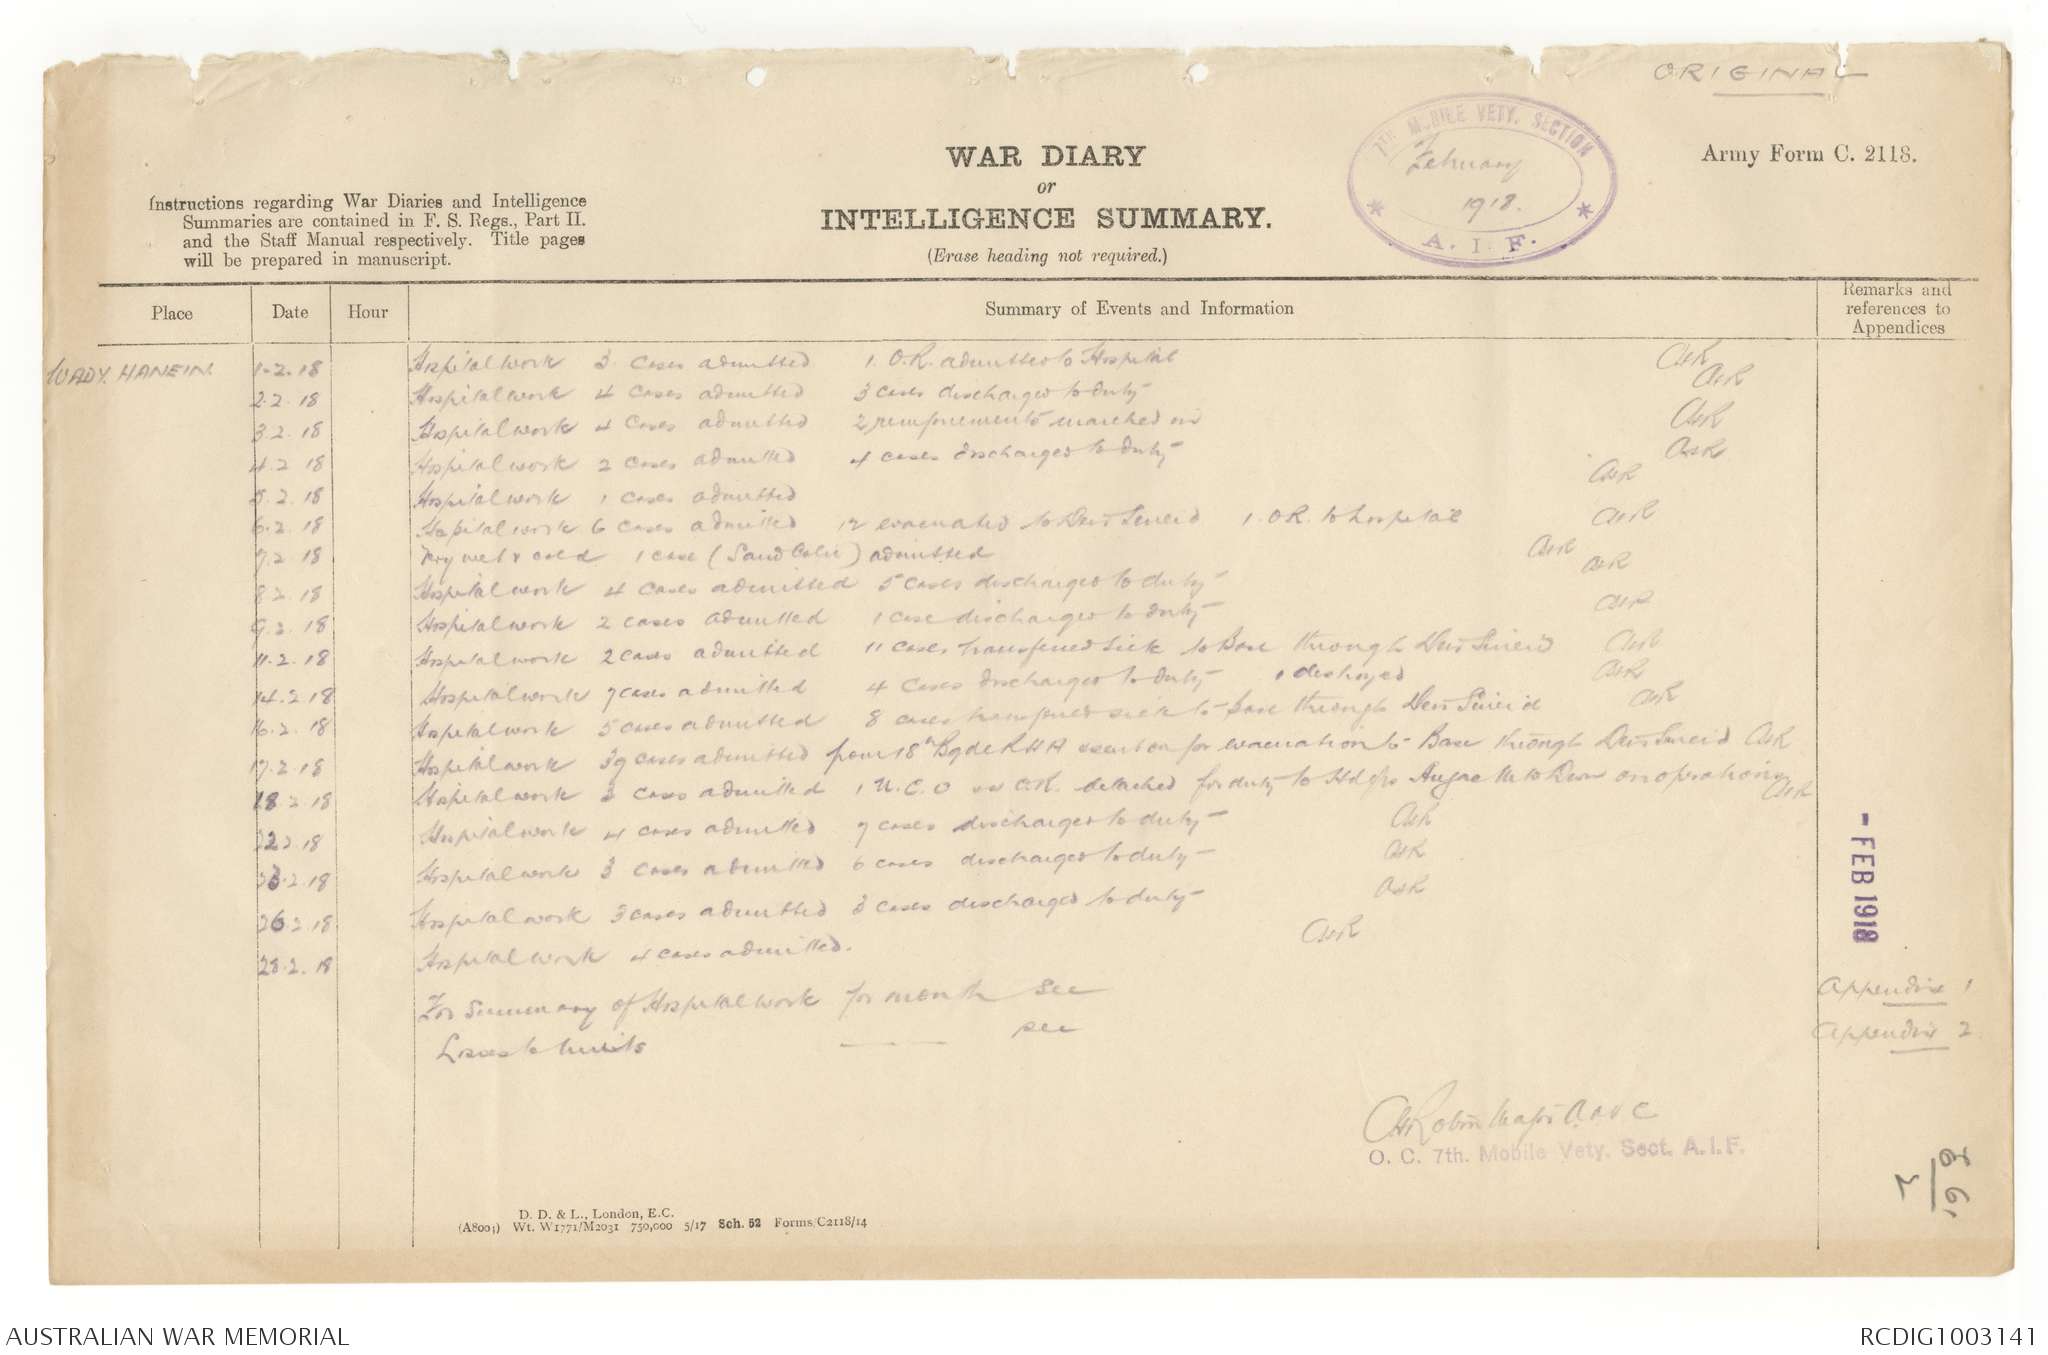 ORIGINAL
7TH MOBILE VETY. SECTION
February
1918.
A. I. F.
WAR DIARY
or
INTELLIGENCE SUMMARY.
(Erase heading not required.)
Army Form C. 2118.
Instructions regarding War Diaries and Intelligence
Summaries are contained in F. S. Regs., Part II.
and the Staff Manual respectively. Title pages
will be prepared in manuscript.
Place Date Hour Summary of Events and Information Remarks and references to Appendices
WADY HANEIN. 1.2.18 Hospital work 3 cases admitted 1. O.R. admitted to Hospital CHR
2.2.18 Hospital work 4 cases admitted 3 cases discharged to duty CHR
3.2.18 Hospital work 4 cases admitted 2 reinforcements marched in CHR
4.2.18 Hospital work 2 cases admitted 4 cases discharged to duty CHR
5.2.18 Hospital work 1 cases admitted CHR
6.2.18 Hospital work 6 cases admitted 12 evacuated to Deir Sineid 1. O.R. to hospital CHR
7.2.18 Very wet & cold 1 case (Sand Colic) admitted CHR
8.2.18 Hospital work 4 cases admitted 5 cases discharged to duty CHR
9.2.18 Hospital work 2 cases admitted 1 case discharged to duty CHR
11.2.18 Hospital work 2 cases admitted 11 cases transferred sick to Base through Deir Sineid CHR
14.2.18 Hospital work 7 cases admitted 4 cases discharged to duty 1 destroyed CHR
16.2.18 Hospital work 5 cases admitted 8 cases transferred sick to Base through Deir Sineid CHR
17.2.18 Hospital work 39 cases admitted from 18th Bgde RHA for evacuation to Base through Deir Sineid CHR
18.2.18 Hospital work 3 cases admitted 1 N.C.O O.R. detached for duty to Hdqrs Anzac Mtd Divn on operations CHR
22.2.18 Hospital work 4 cases admitted 7 cases discharged to duty CHR
23.2.18 Hospital work 3 cases admitted 6 cases discharged to duty CHR
26.2.18 Hospital work 3 cases admitted 3 cases discharged to duty CHR
28.2.18 Hospital work 4 cases admitted. CHR
For Summary of Hospital work for month see Appendix 1
Issues to Units see Appendix 2
- FEB 1918
Major A.A.V.C
O. C. 7th. Mobile Vety. Sect. A.I.F.
D. D. & L., London, E.C.
(A8004) Wt. W1771/M2031 750,000 5/17 Sch. 52 Forms/C2118/14
AUSTRALIAN WAR MEMORIAL
RCDIG1003141